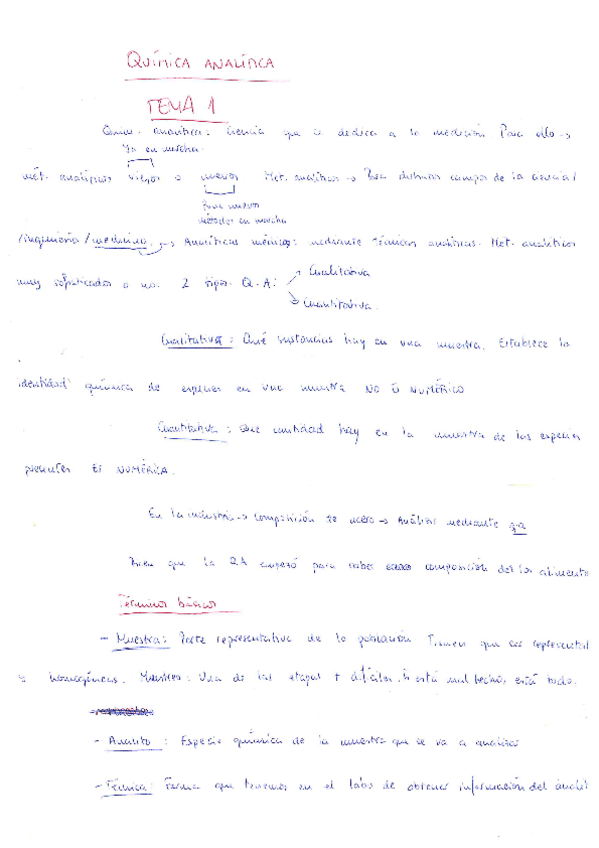 QUÍMICA ANALÍTICA
TEMA 1
Quím. analítica: Ciencia que se dedica a la medición Para ello →
Ya en marcha.
mét. analíticos viejos o nuevos Met. analíticos → Para distintos campos de la ciencia/
Poner nuevos
métodos en marcha
/ingeniería/medicina. → Analíticas médicas: mediante técnicas analíticas. Met. analíticos
muy sofisticados o no. 2 tipos Q.A:
Cualitativa
Cuantitativa.
Cualitativa: Qué sustancias hay en una muestra. Establece la
identidad química de especies en una muestra NO ES NUMÉRICO
Cuantitativa: Que cantidad hay en la muestra de las especies
presentes ES NUMÉRICA.
En la industria → Composición de acero → Análisis mediante qa
que la QA empezó para saber composición de los alimento
Términos básicos
- Muestra: Parte representativa de la población Tienen que ser representat
y homogéneas. Muestreo: Una de las etapas + difíciles. Si está mal hecho está todo.
- Analito: Especie química de la muestra que se va a analizar
- Técnica: Forma que tenemos en el labo de obtener información del analit